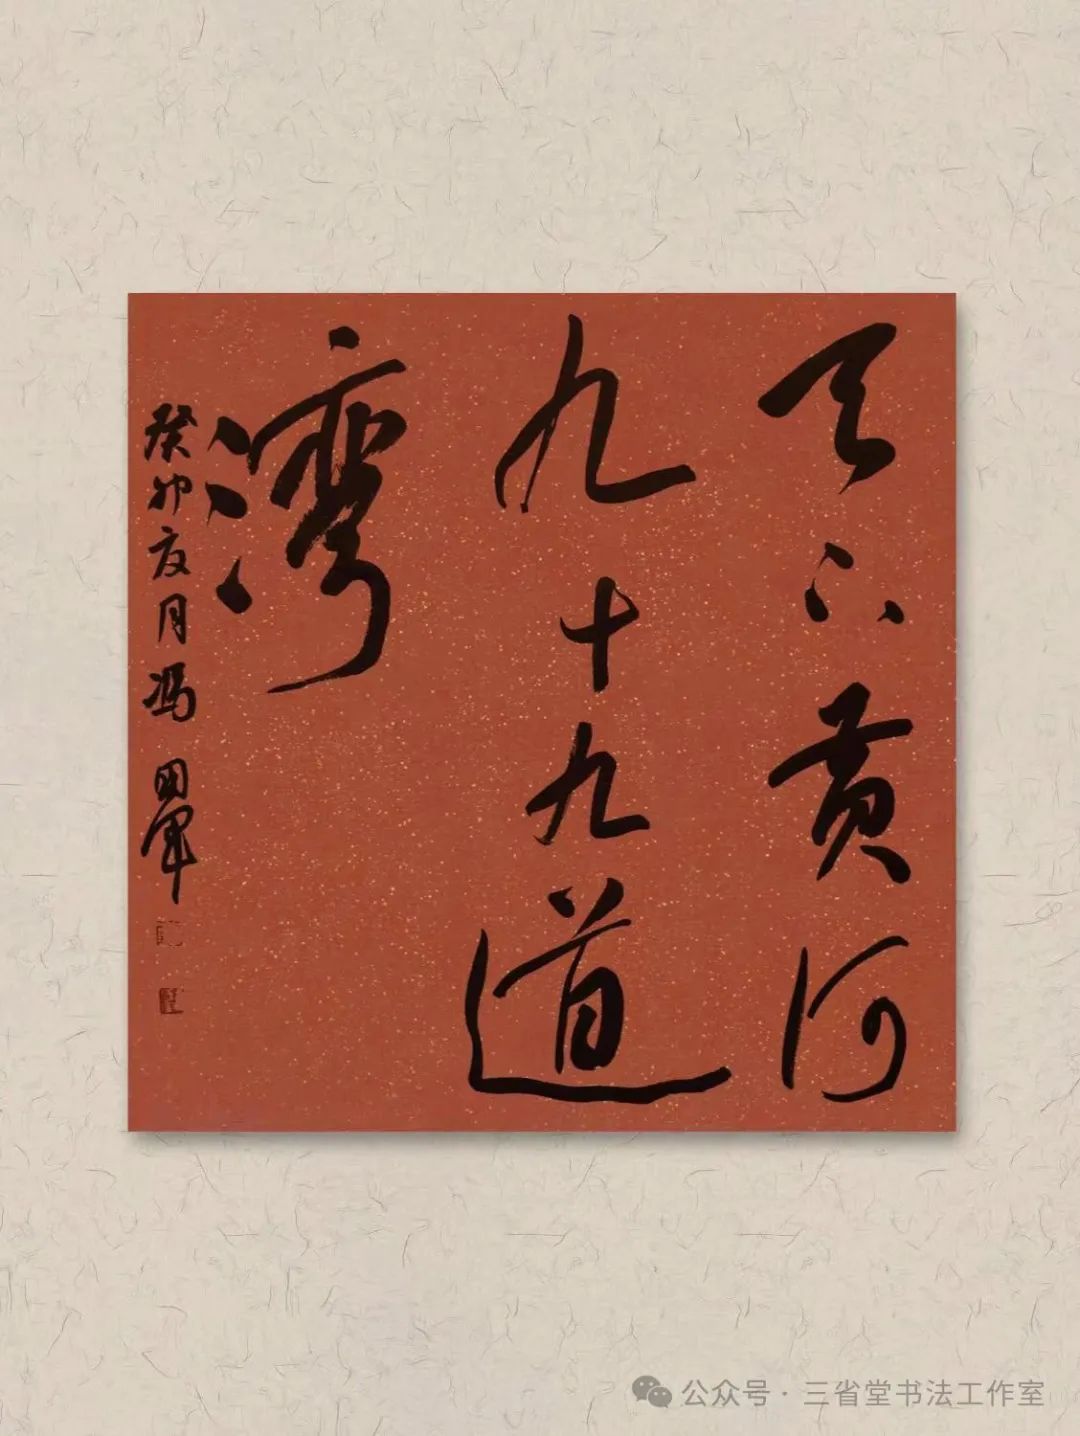 天下黄河
九十九道
灣
癸卯夏月馮
公众号·三省堂书法工作室